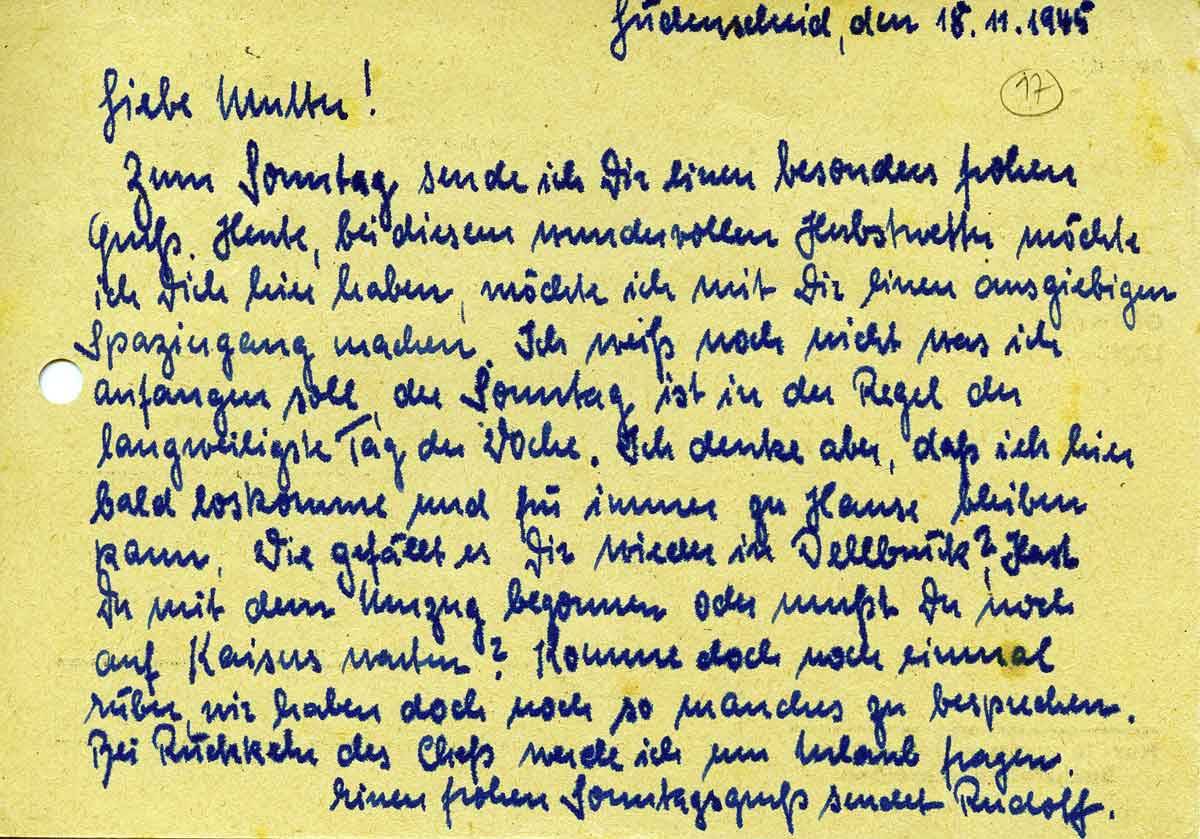 Lüdenscheid, den 15.11.1945
17
Liebe Mutter!
Zum Sonntag sende ich Dir einen besonders frohen
Gruß. Heute, bei diesem wundervollen Herbstwetter möchte
ich Dich hier haben, möchte ich mit Dir einen ausgiebigen
Spaziergang machen. Ich weiß noch nicht was ich
anfangen soll, der Sonntag ist in der Regel der
langweiligste Tag der Woche. Ich denke aber, daß ich hier
bald loskomme und für immer zu Hause bleiben
kann. Wie gefällt es Dir wieder in Dellbrück? Hast
Du mit dem Umzug begonnen oder mußt Du noch
auf Kaisers warten? Komme doch noch einmal
rüber, wir haben doch noch so manches zu besprechen.
Bei Rückkehr des Chefs werde ich um Urlaub fragen.
Einen frohen Sonntagsgruß sendet Rudolf.